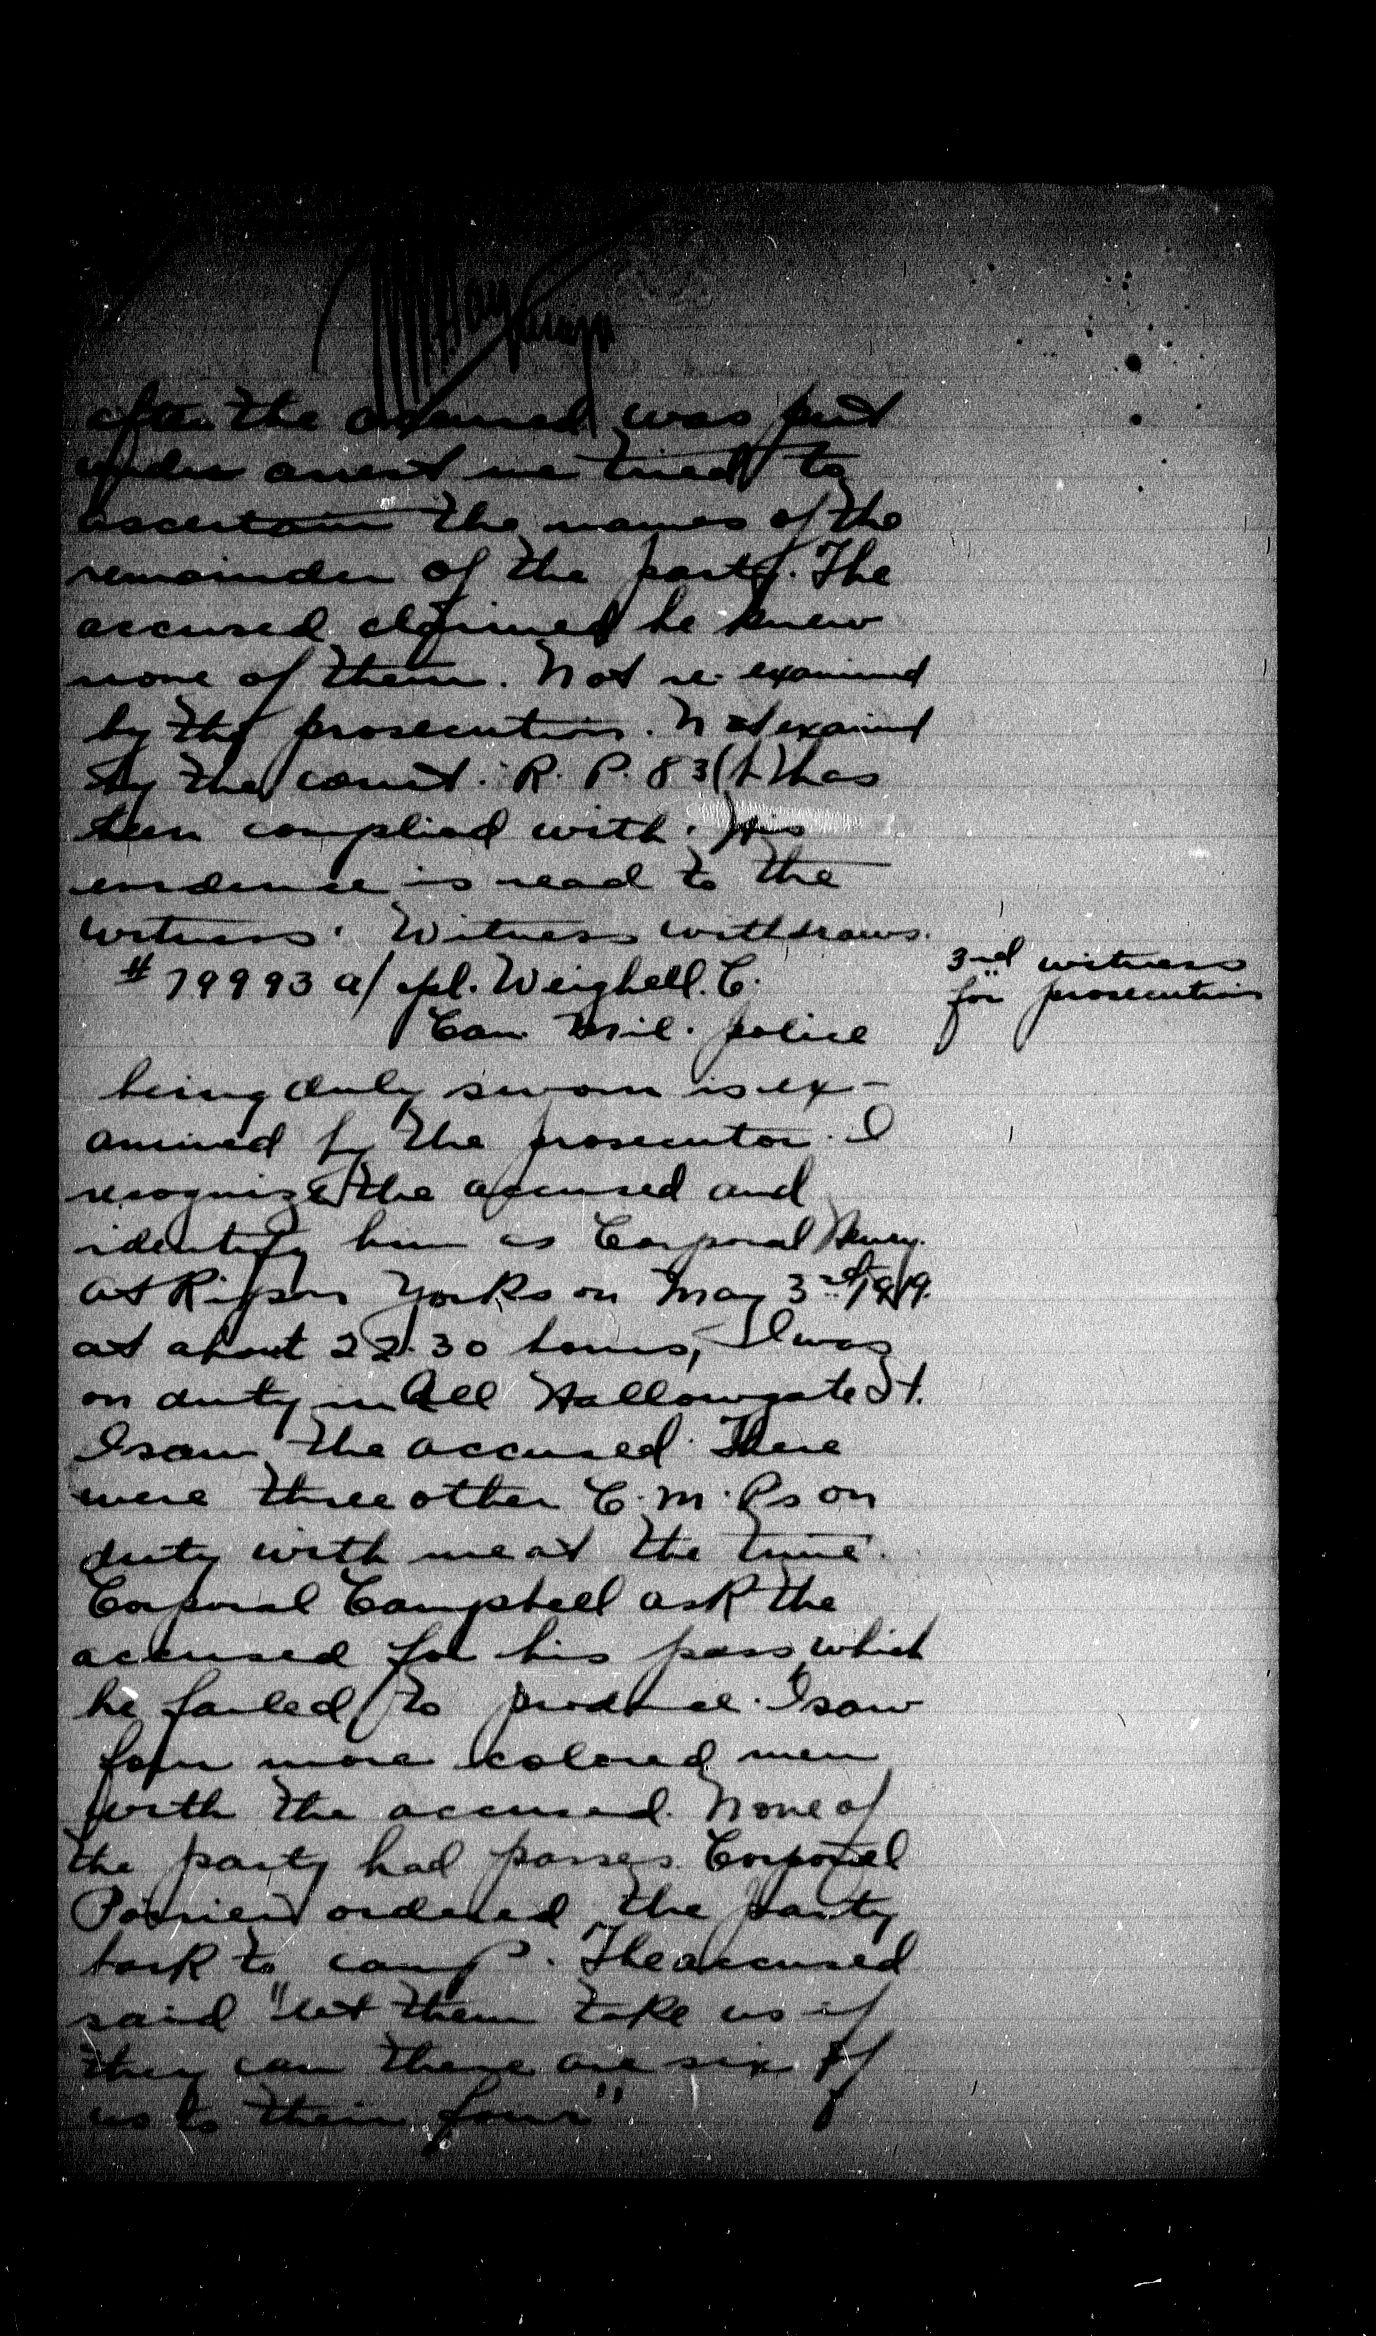 after the accused was put
under arrest we tried to
ascertain the names of the
remainder of the party. The
accused claimed he knew
none of them. Not re-examined
by the prosecution. Not examined
by the court. R. P. 83(b) has
been complied with. His
evidence is read to the
witness. Witness withdraws.
3rd witness
for prosecution
# 79993 a/cpl. Weighell. C.
Can. Mil. police
being duly sworn is ex-
amined by the prosecutor. I
recognize the accused and
identify him as Corporal
at Ripon Yorks on May 3rd, 1919.
at about 22.30 hours, I was
on duty in All Hallowgate St.
I saw the accused. There
were three other C.M.Ps on
duty with me at the time.
Corporal Campbell ask the
accused for his pass which
he failed to produce. I saw
four more colored men
with the accused. None of
the party had passes. Corporal
Poirier ordered the party
back to camp. The accused
said "let them take us if
they can there are six of
us to their four"